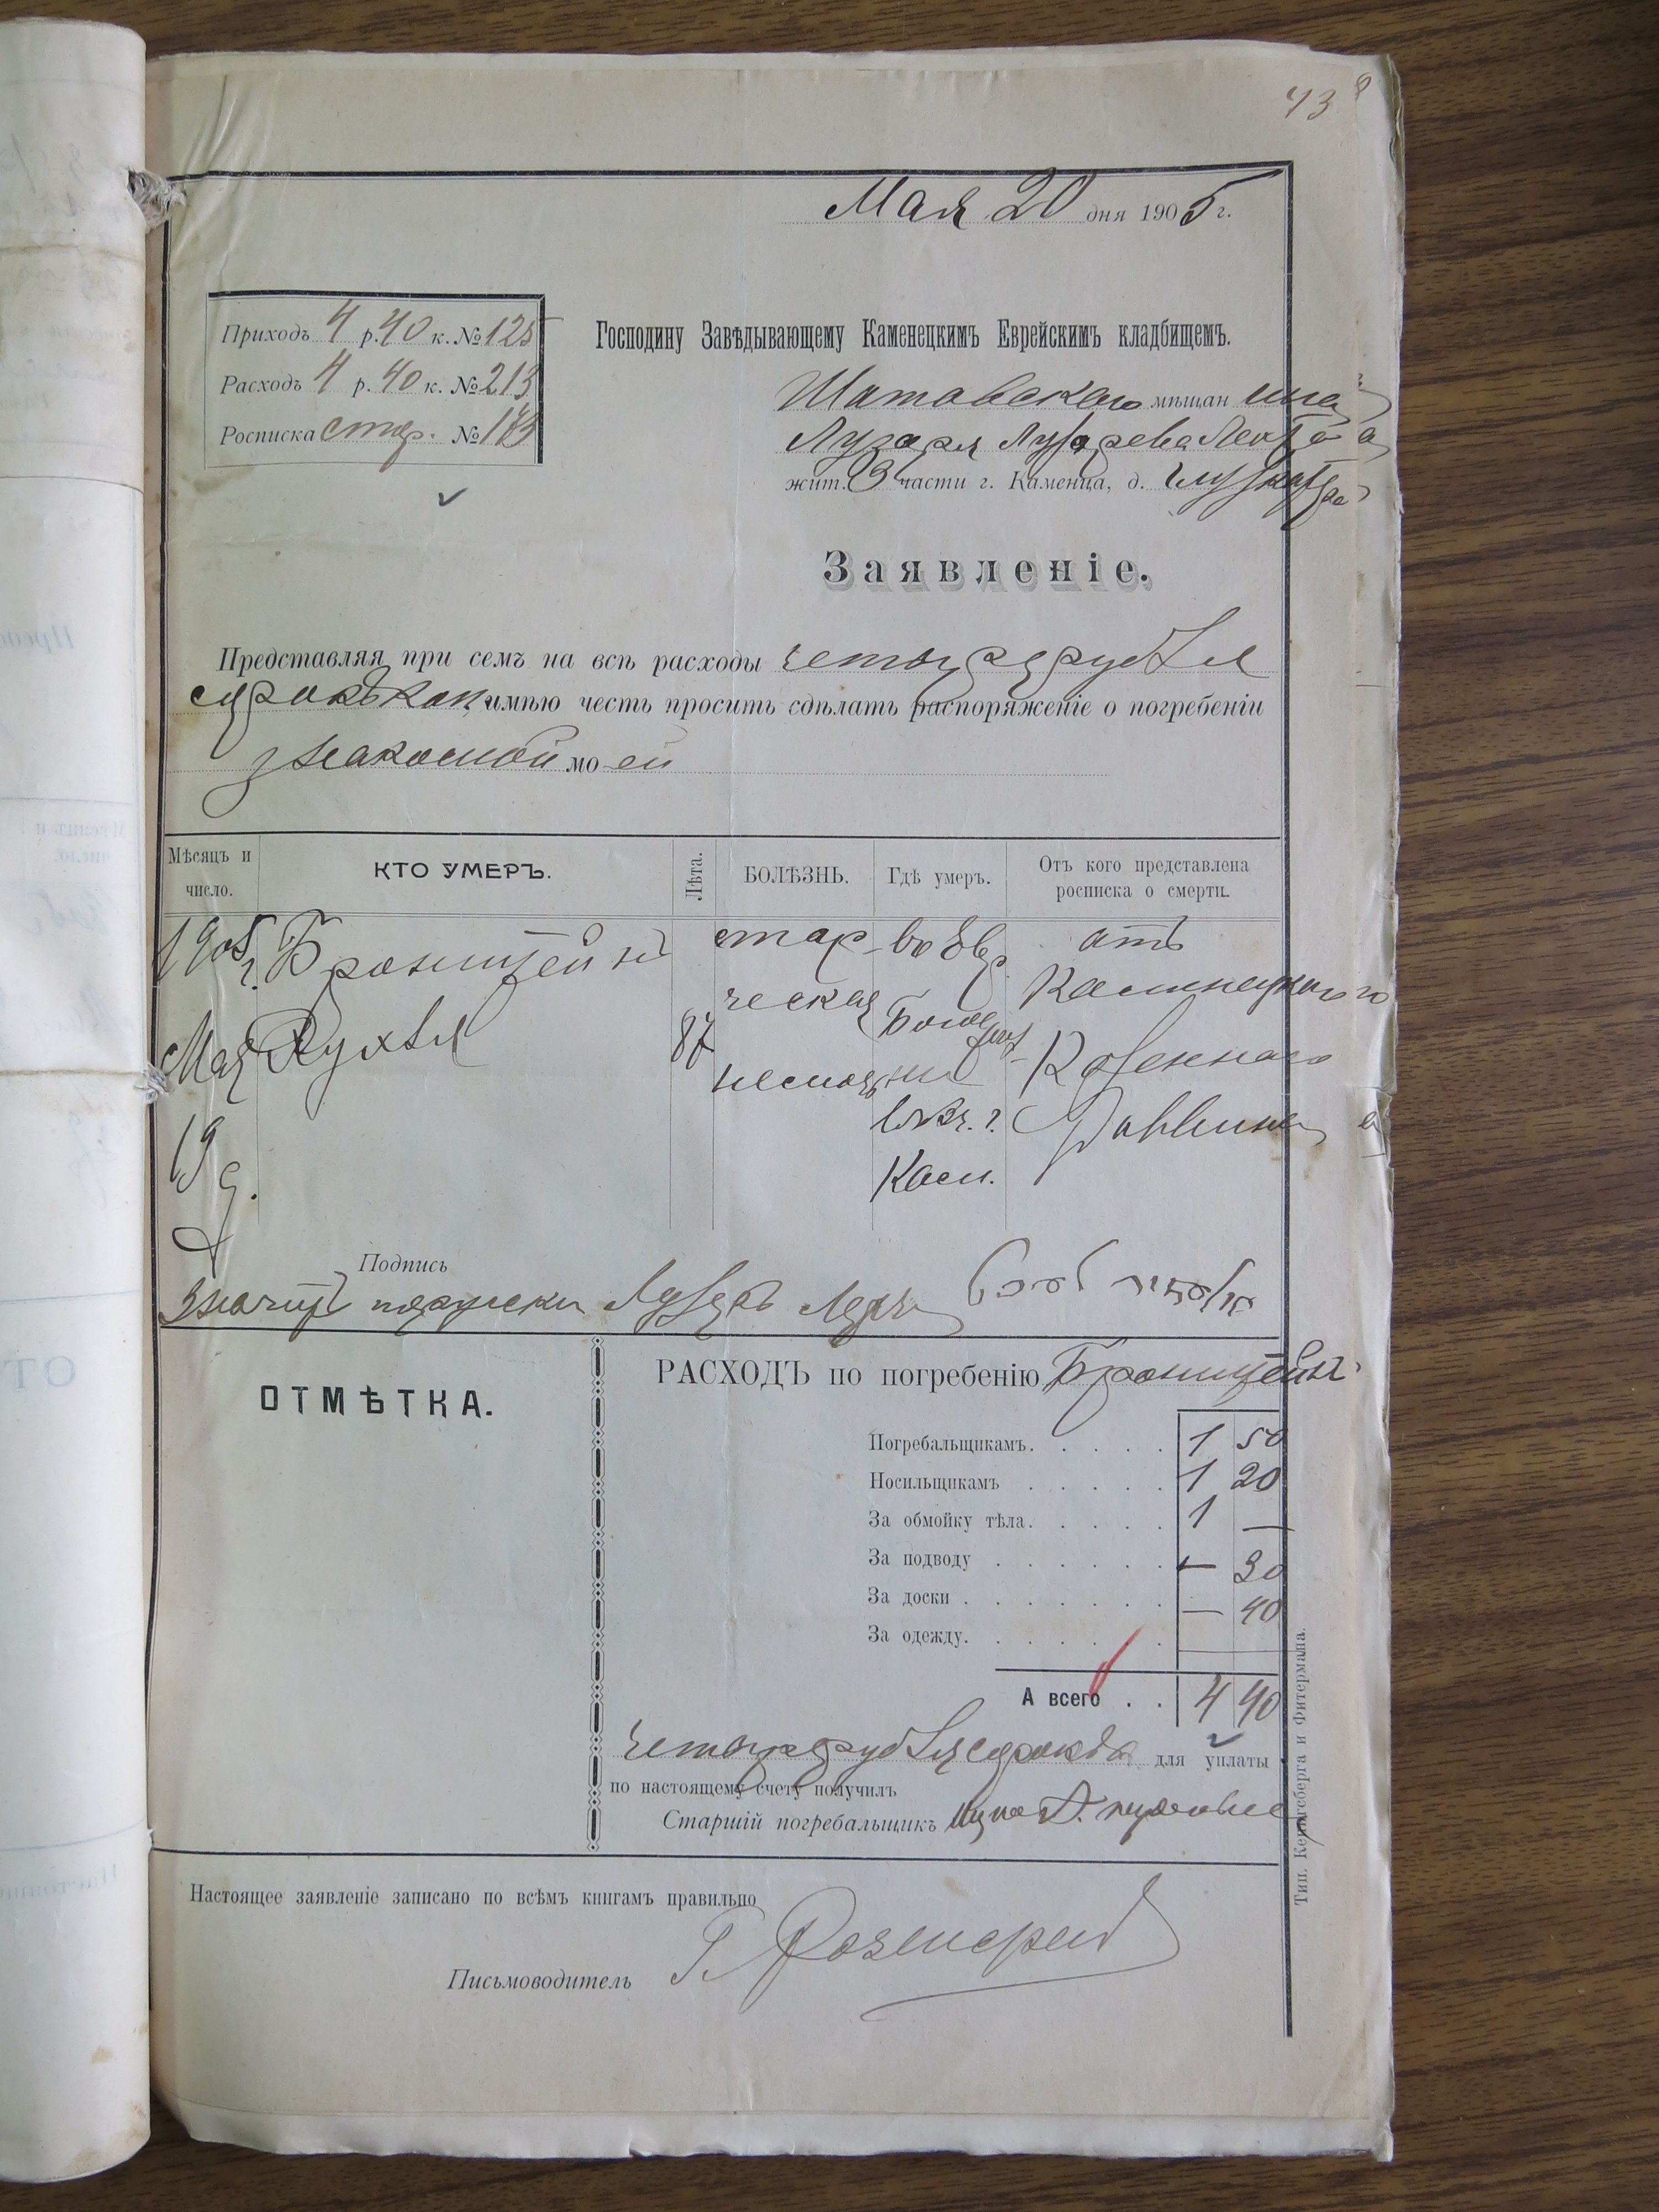 43
Мая 20 дня 1905 г.
Приходъ 4 р. 40 к. № 125
Расходъ 4 р. 40 к. № 213
Росписка стар. №
Господину Завѣдывающему Каменецкимъ Еврейскимъ кладбищемъ.
Шатавскаго мѣщан ина
Лузаря Лузарева
жит. 3 части г. Каменца, д.
Заявленіе.
Представляя при семъ на всѣ расходы четыре рубля
сорокъ коп имѣю честь просить сдѣлать распоряженіе о погребеніи
знакомой мо ей
Мѣсяцъ и число. КТО УМЕРЪ. Лѣта. БОЛѢЗНЬ. Гдѣ умеръ. Отъ кого представлена росписка о смерти.
1905 г. Бронштейнъ стар- въ Евр. отъ
Мая Рухля 87 ческая Богадѣль- Каменецкаго
19 д. немощь ни Казеннаго
въ г. Раввина
Кам.
Подпись
Значитъ по русски Лузаръ
ОТМѢТКА.
РАСХОДЪ по погребенію Бронштейнъ
Погребальщикамъ. . . . . 1 50
Носильщикамъ . . . . . 1 20
За обмойку тѣла. . . . . 1 —
За подводу . . . . . . — 30
За доски . . . . . . . — 40
За одежду. . . . . .
А всего . . 4 40
Четыре рубля сорокъ к. для уплаты
по настоящему счету получилъ
Старшій погребальщикъ
Настоящее заявленіе записано по всѣмъ книгамъ правильно
Письмоводитель Г.
Тип. Кенигсберга и Фитермана.